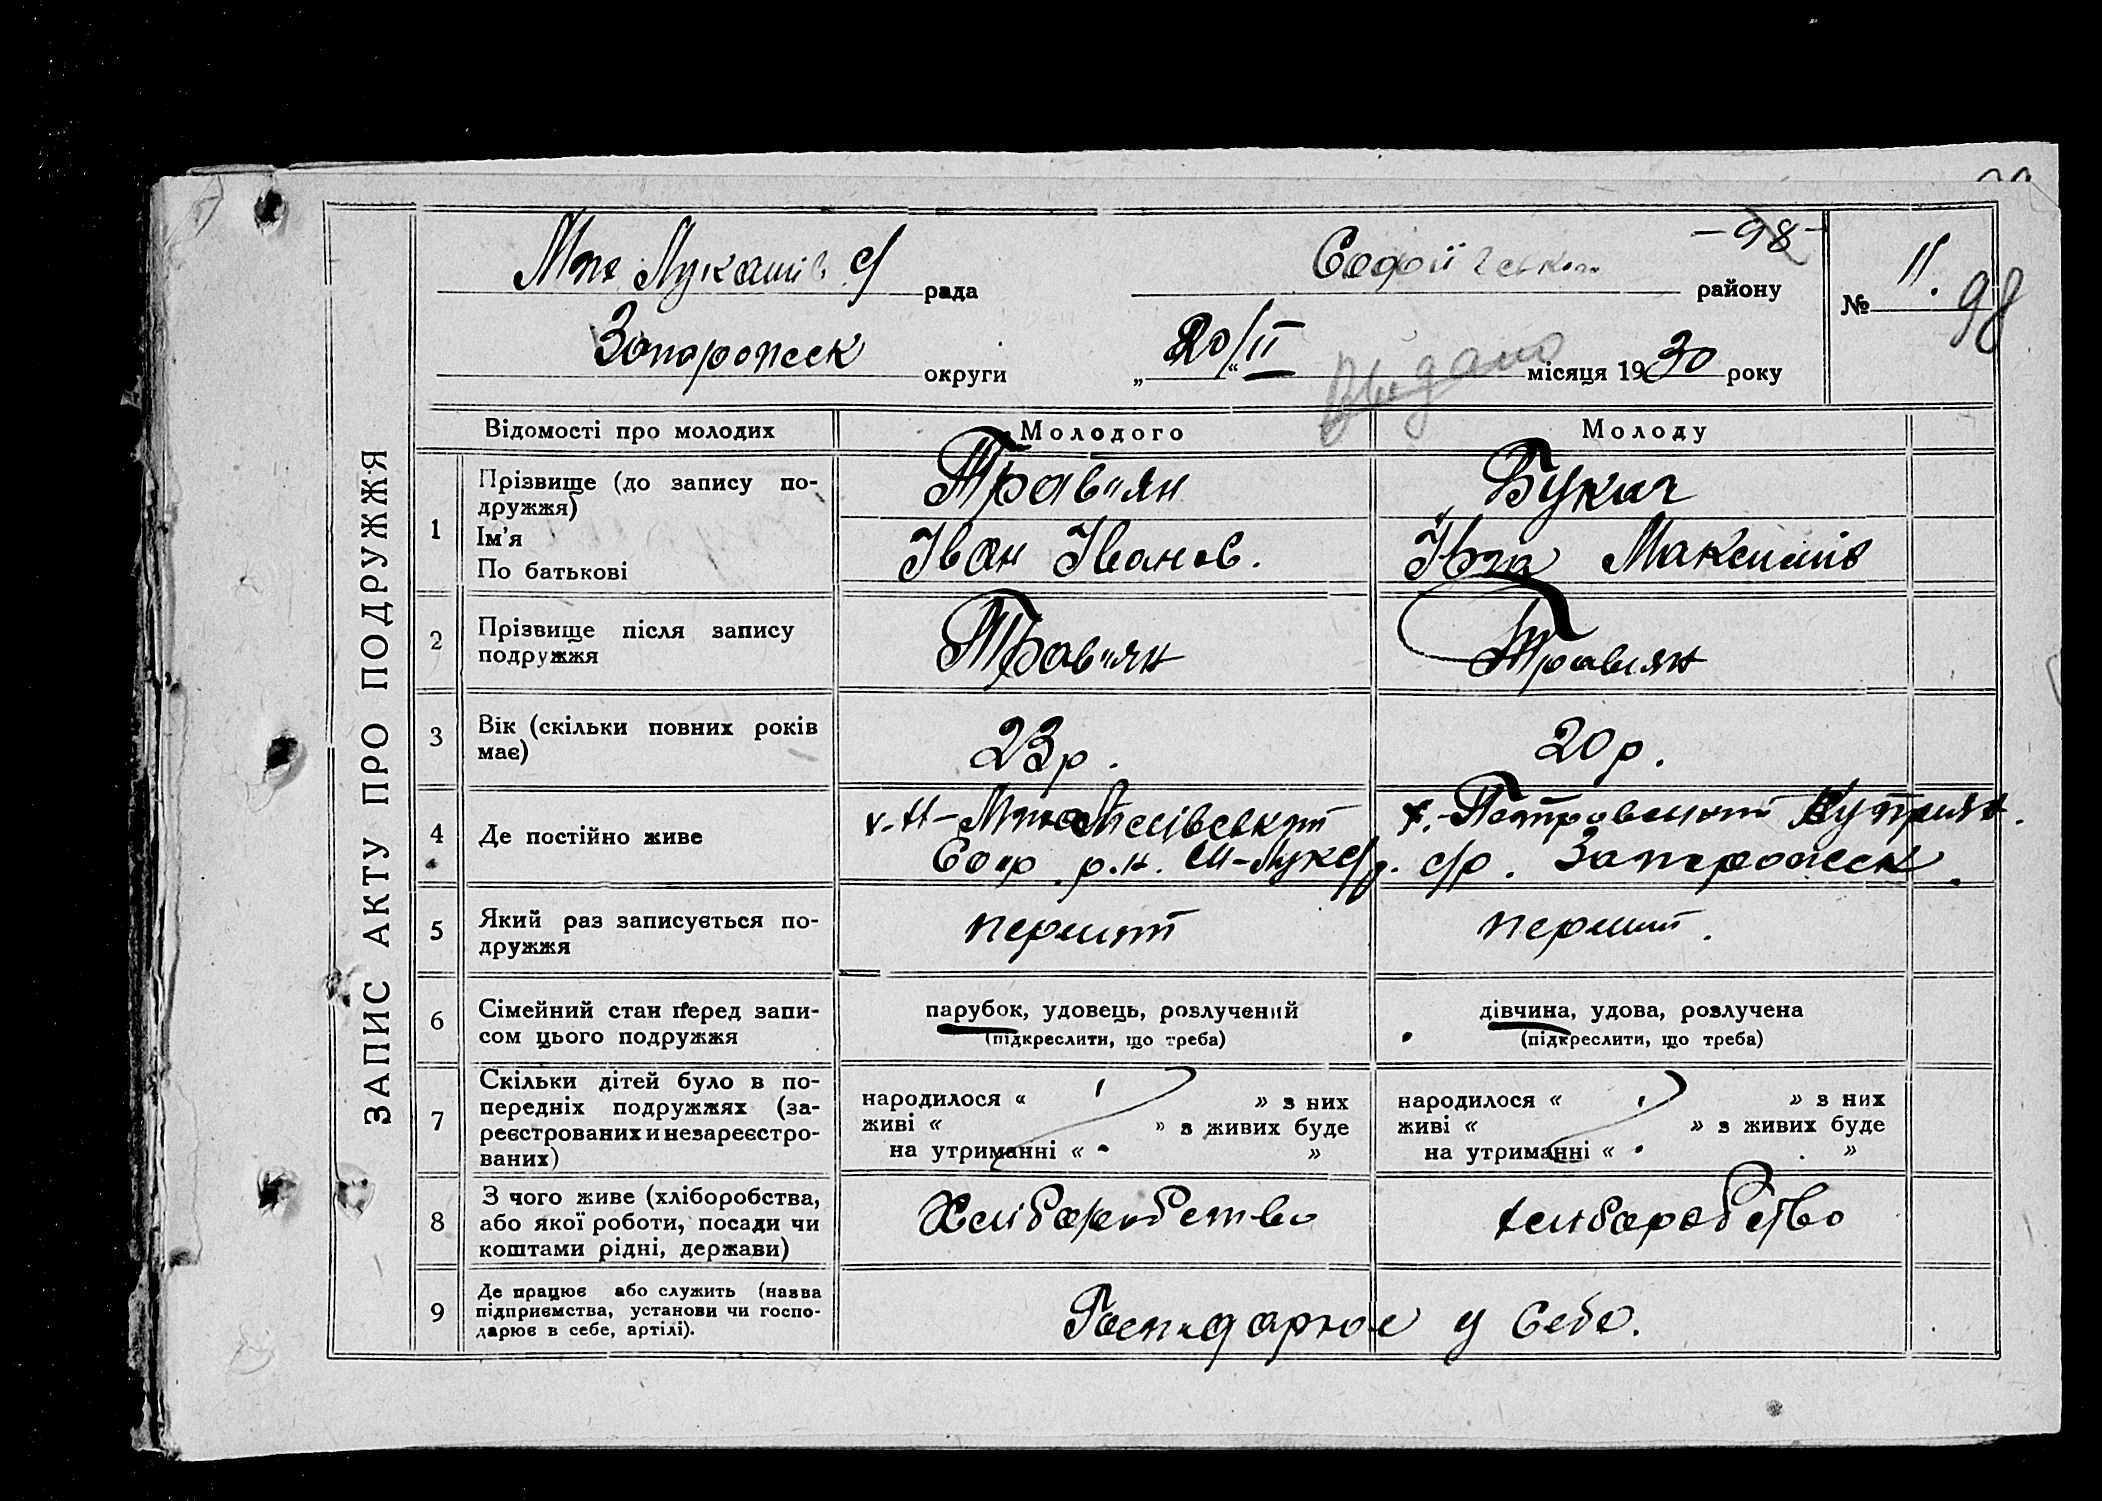 ЗАПИС АКТУ ПРО ПОДРУЖЖЯ
рада
-98-
району
№ 11. 98
Запорожск округи
„20/II“ місяця 1930 року
Видано
Відомості про молодих Молодого Молоду
1 Прізвище (до запису по-
дружжя)
Ім'я
По батькові
Трав"ян
Іван Іванов.
Букач
Максимів
2 Прізвище після запису
подружжя
Трав"ян
Травиян
3 Вік (скільки повних років
має)
23 р.
20 р.
4 Де постійно живе
с/р. Запорожск.
5 Який раз записується по-
дружжя
перший
перший.
6 Сімейний стан перед запи-
сом цього подружжя
парубок, удовець, розлучений
(підкреслити, що треба)
дівчина, удова, розлучена
(підкреслити, що треба)
7 Скільки дітей було в по-
передніх подружжях (за-
реєстрованих и незареєстро-
ваних)
народилося « » з них
живі « » з живих буде
на утриманні « »
народилося « » з них
живі « » з живих буде
на утриманні « »
8 З чого живе (хліборобства,
або якої роботи, посади чи
коштами рідні, держави)
Хліборобство
хліборобство
9 Де працює або служить (назва
підприємства, установи чи госпо-
дарює в себе, артілі).
Господарює у себе.